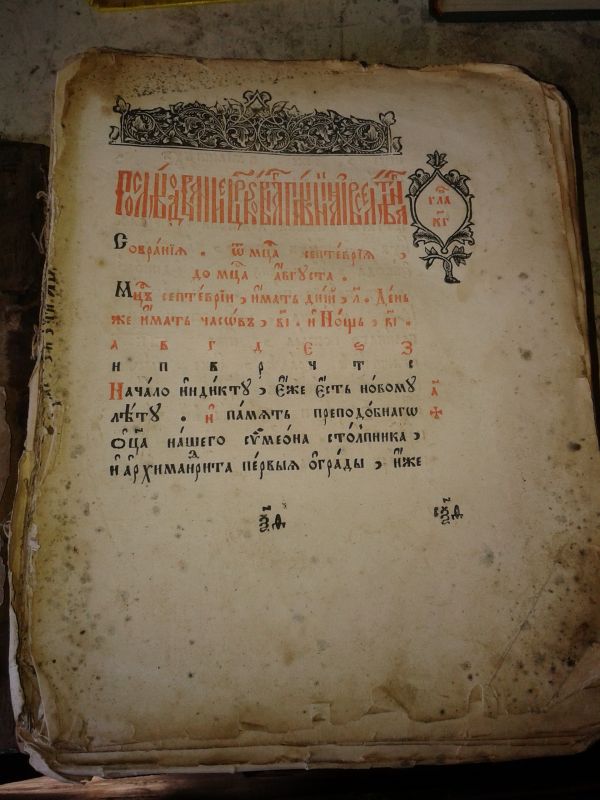 Послѣдованїе црковнаго пѣнїѧ и вселѣтнаго
ѿ
гла
кг
Собра́нїѧ . ѿ мц҃а септе́врїѧ ,
до мц҃а а҆́вгꙋста .
Мц҃ъ септе́врїи , и҆́мать дні́й , л҃ . Де́нь
же и҆́мать часѡ́въ , в҃і . и҆ Но́щь , в҃і .
а в г д е ѕ з
и п в р ч т с
Нача́ло и҆нді́ктꙋ , є҆́же є҆́сть но́вомꙋ
а҃
лѣ́тꙋ . и҆ па́мѧть преподо́бнагѡ
ѻ҆ц҃а на́шего сѷмео́на сто́лпника ,
и҆ а҆рхимандри́та пе́рвыѧ ѻ҆гра́ды , и҆́же